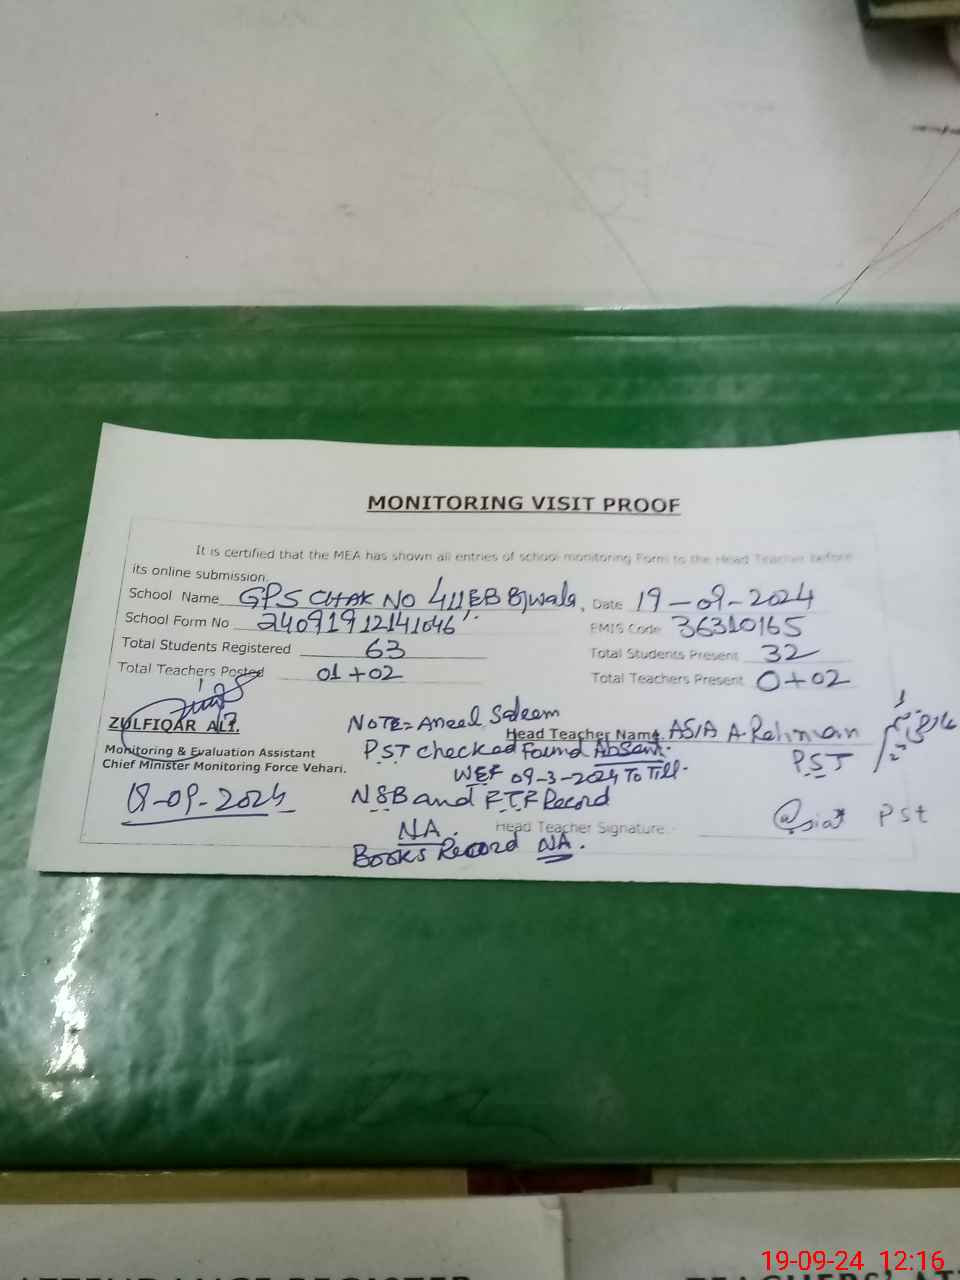 MONITORING VISIT PROOF
It is certified that the MEA has shown all entries of school monitoring Form to the Head Teacher before
its online submission.
School Name GPS CHAK NO 411EB Bjwala, Date 19-09-2024
School Form No 24091912141046 EMIS Code 36310165
Total Students Registered 63 Total Students Present 32
Total Teachers Posted 01+02 Total Teachers Present 0+02
ZULFIQAR ALI.
Monitoring & Evaluation Assistant
Chief Minister Monitoring Force Vehari.
19-09-2024
NOTE= Aneel Saleem
PST checked Found Absent.
WEF 09-3-2024 To Till.
NSB and FTF Record
NA.
Books Record NA.
Head Teacher Name. ASIA A-Rehman
PST
Head Teacher Signature. Asia PST
ATTENDANCE REGISTER
19-09-24 12:16